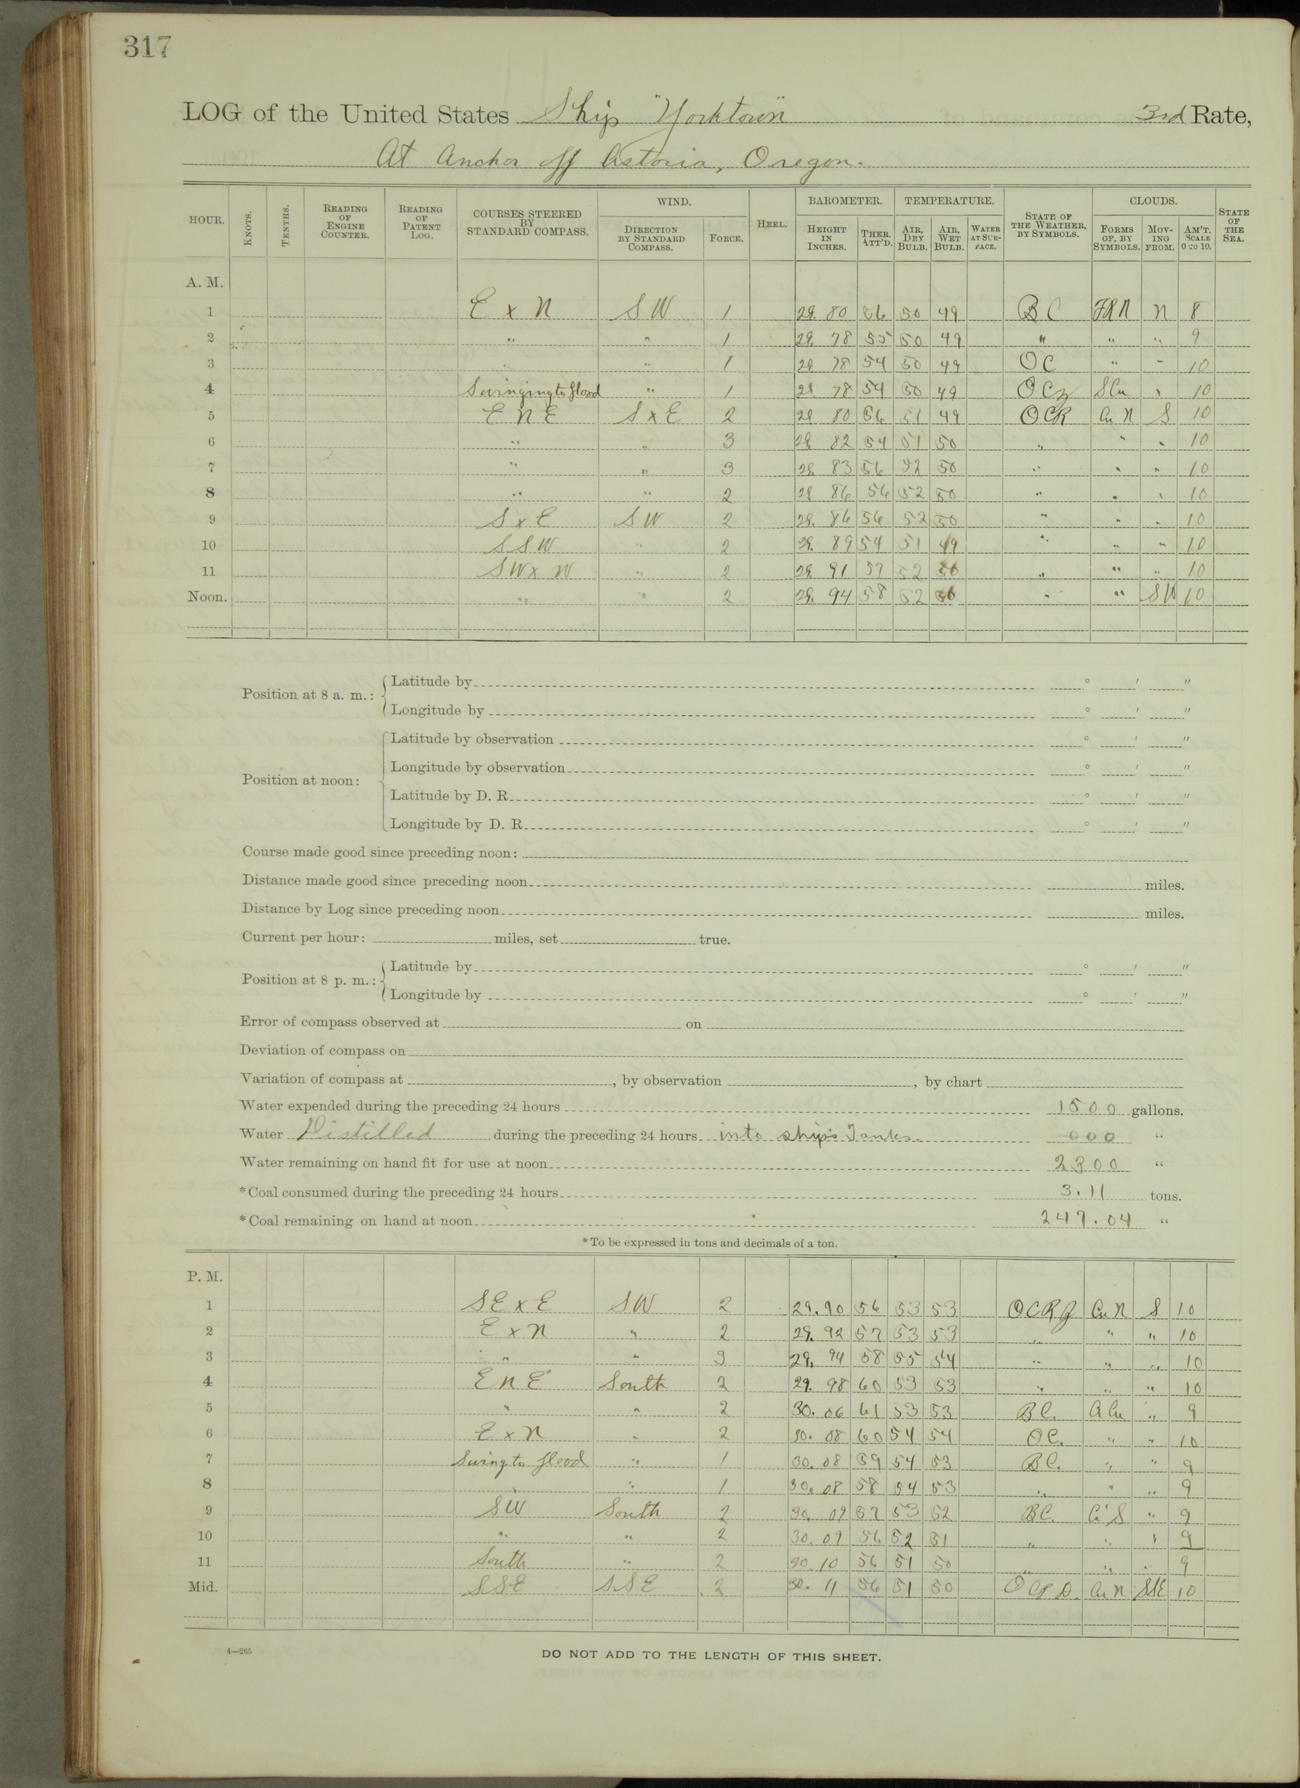 317
LOG of the United States Ship "Yorktown" 3rd Rate,
At Anchor off Astoria, Oregon.
HOUR. KNOTS. TENTHS. READING OF ENGINE COUNTER. READING OF PATENT LOG. COURSES STEERED BY STANDARD COMPASS. WIND. DIRECTION BY STANDARD COMPASS. FORCE. HEEL. BAROMETER. HEIGHT IN INCHES. THER. ATT'D. TEMPERATURE. AIR, DRY BULB. AIR, WET BULB. WATER AT SURFACE. STATE OF THE WEATHER, BY SYMBOLS. CLOUDS. FORMS OF, BY SYMBOLS. MOVING FROM. AM'T. SCALE 0 TO 10. STATE OF THE SEA.
A. M.
1 E x N SW 1 29 80 56 50 49 BC N 8
2 " " 1 29. 78 55 50 49 " " " 9
3 " " 1 29 78 54 50 49 OC " " 10
4 Swinging to flood " 1 29 78 54 50 49 SCu " 10
5 ENE S x E 2 29 80 56 51 49 OCR Cu N S 10
6 " " 3 29. 82 54 51 50 " " " 10
7 " " 3 29. 83 56 52 50 " " " 10
8 " " 2 29 86 56 52 50 " " " 10
9 S x E SW 2 29. 86 56 52 50 " " " 10
10 SSW " 2 29. 89 54 51 49 " " " 10
11 SW x W " 2 29. 91 57 52 " " " 10
Noon. " " 2 29. 94 58 52 " " SW 10
Position at 8 a. m.: Latitude by ° ' "
Longitude by ° ' "
Position at noon: Latitude by observation ° ' "
Longitude by observation ° ' "
Latitude by D. R. ° ' "
Longitude by D. R. ° ' "
Course made good since preceding noon:
Distance made good since preceding noon miles.
Distance by Log since preceding noon miles.
Current per hour: miles, set true.
Position at 8 p. m.: Latitude by ° ' "
Longitude by ° ' "
Error of compass observed at on
Deviation of compass on
Variation of compass at , by observation , by chart
Water expended during the preceding 24 hours 1500 gallons.
Water Distilled during the preceding 24 hours into ship's Tanks. 000 "
Water remaining on hand fit for use at noon 2300 "
*Coal consumed during the preceding 24 hours 3.11 tons.
*Coal remaining on hand at noon 247.04 "
*To be expressed in tons and decimals of a ton.
P. M.
1 SE x E SW 2 29.90 56 53 53 Cu N S 10
2 E x N " 2 29. 92 57 53 53 " " " 10
3 " " 3 29. 94 58 55 54 " " " 10
4 ENE South 2 29. 98 60 53 53 " " " 10
5 " " 2 30. 06 61 53 53 BC. " 9
6 E x N " 2 30. 08 60 54 54 OC. " " 10
7 Swing to flood " 1 30. 08 59 54 53 BC. " " 9
8 " " 1 30. 08 58 54 53 " " " 9
9 SW South 2 30. 09 57 53 52 BC. Ci S " 9
10 " " 2 30. 09 56 52 51 " " " 9
11 South " 2 30. 10 56 51 50 " " " 9
Mid. SSE SSE 2 30. 11 56 51 50 Cu N SSE 10
4—265
DO NOT ADD TO THE LENGTH OF THIS SHEET.